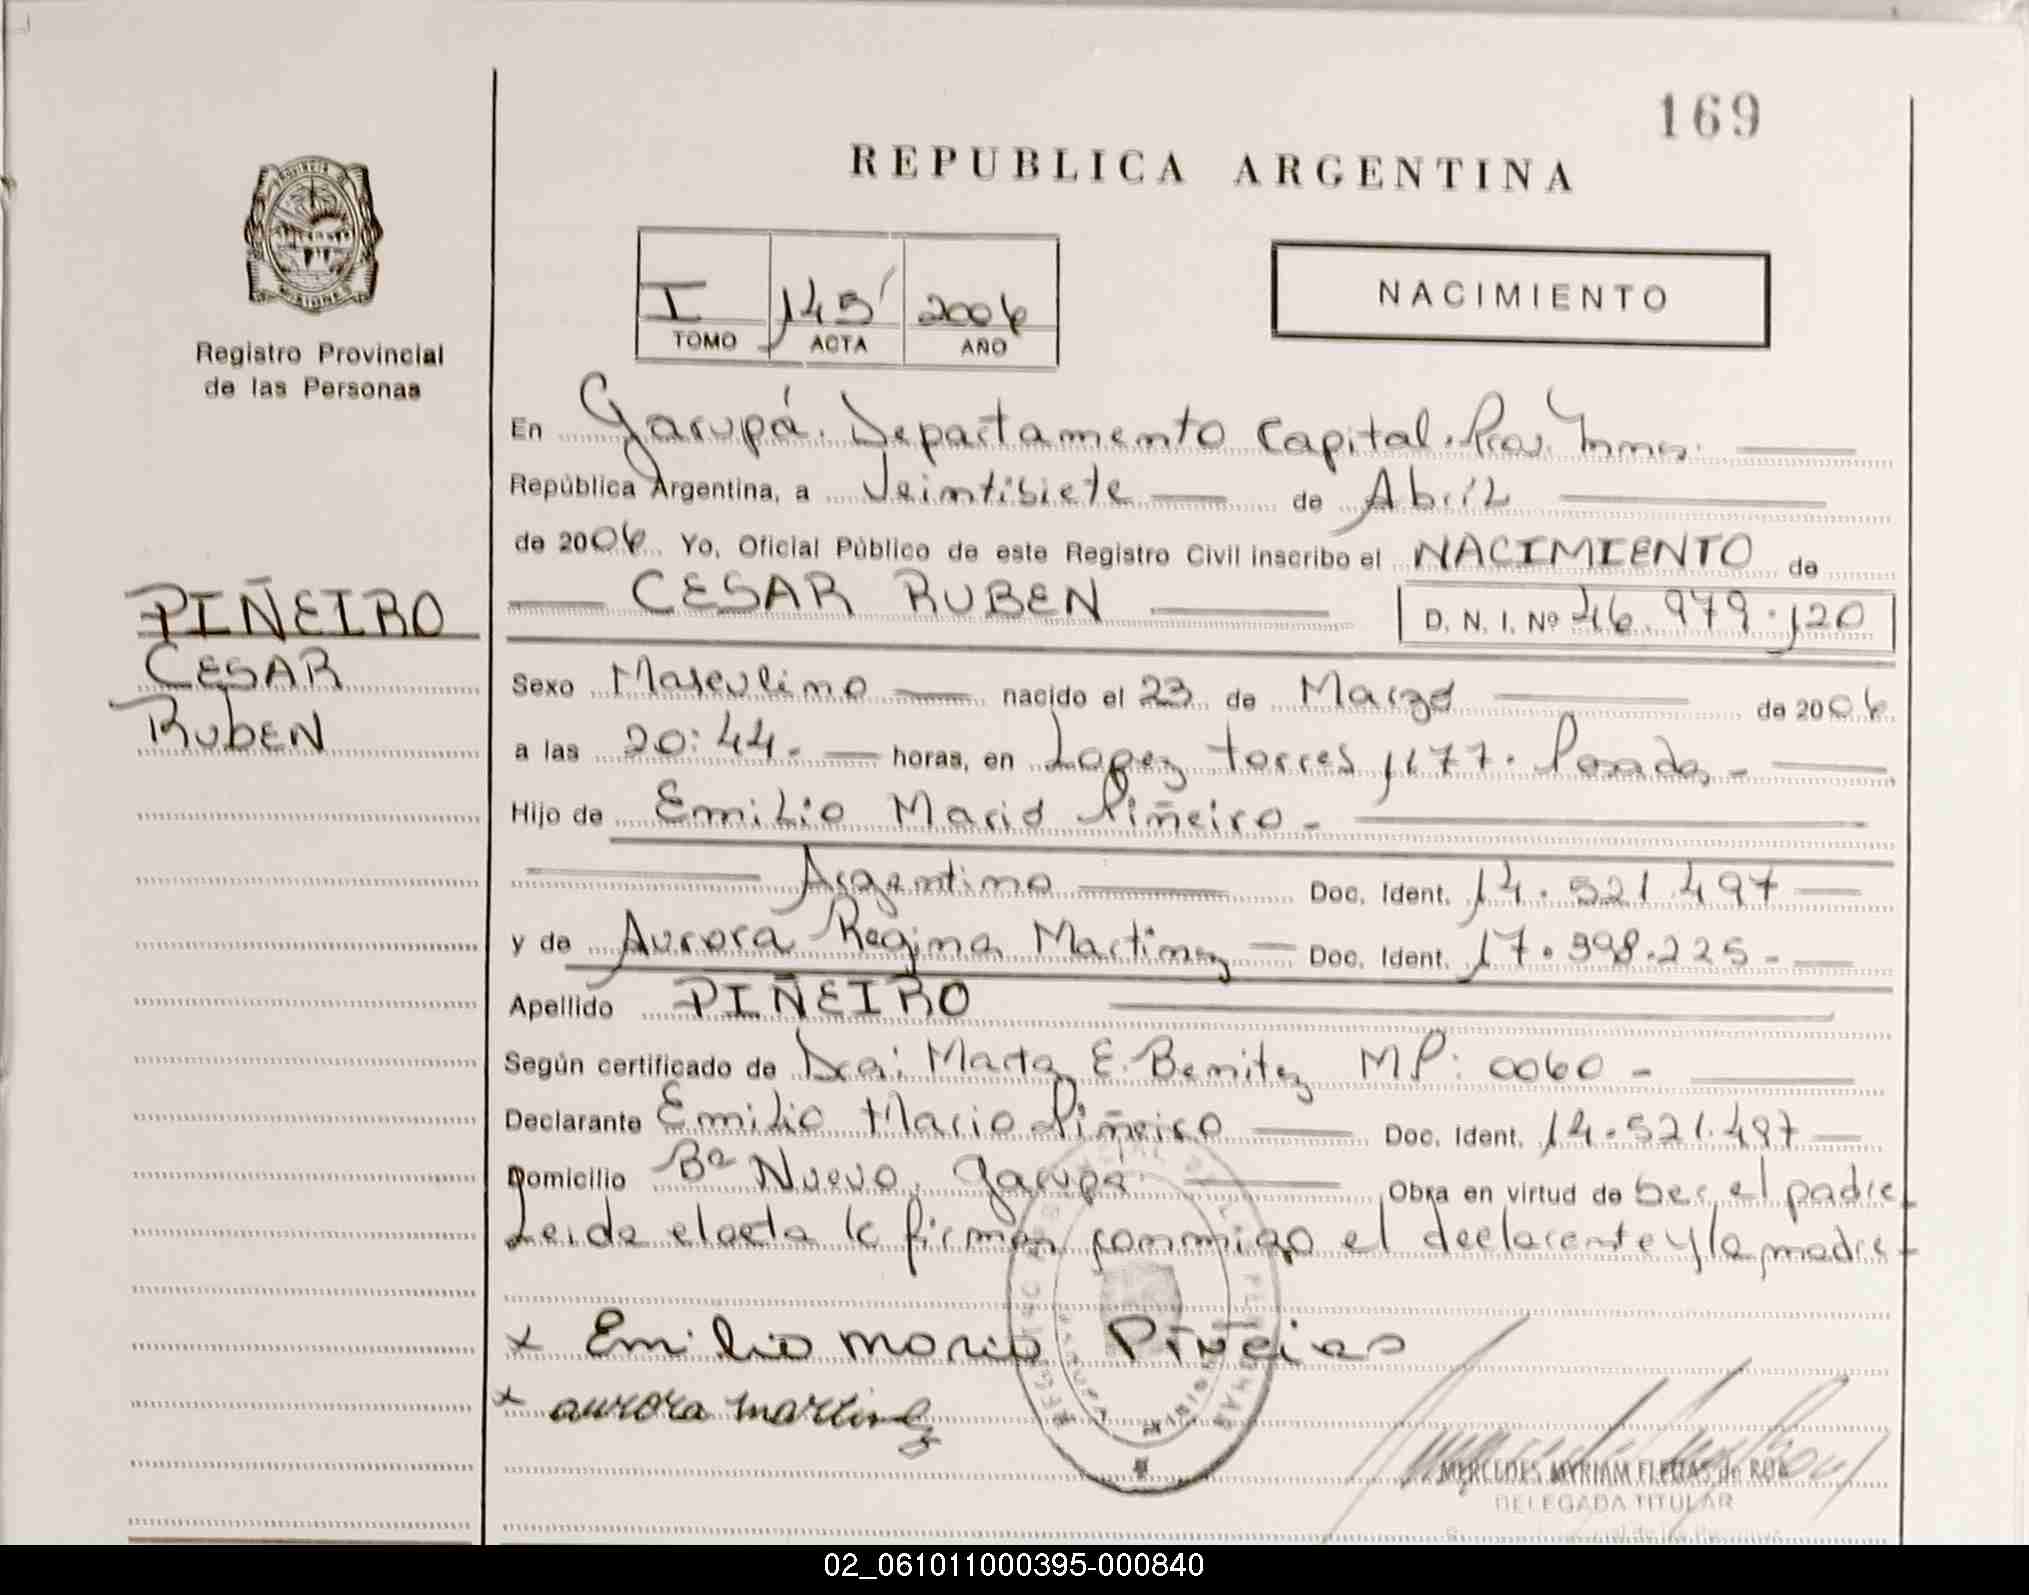 169
REPUBLICA ARGENTINA
PROVINCIA DE MISIONES
Registro Provincial
de las Personas
I 145 2006
TOMO ACTA AÑO
NACIMIENTO
En Garupá. Departamento Capital. Prov. Mnes.
República Argentina, a Veintisiete de Abril
de 2006 Yo, Oficial Público de este Registro Civil inscribo el NACIMIENTO de
CESAR RUBEN D. N. I. Nº 46.979.120
PIÑEIRO
CESAR
RUBEN
Sexo Masculino nacido el 23 de Marzo de 2006
a las 20:44.- horas, en Lopez torres 1177. Posadas -
Hijo de Emilio Mario Piñeiro -
Argentino Doc. Ident. 14.521.497
y de Aurora Regina Martinez Doc. Ident. 17.398.225-
Apellido PIÑEIRO
Según certificado de Dra: Marta E. Benitez MP: 0060 -
Declarante Emilio Mario Piñeiro Doc. Ident. 14.521.497
Domicilio Bº Nuevo, Garupa. Obra en virtud de ser el padre.
Leida el acta la firman conmigo el declarante y la madre-
x Emilio mario Piñeiro
x aurora martinez
MERCEDES MYRIAM FLEITAS de RUA
DELEGADA TITULAR
02_061011000395-000840